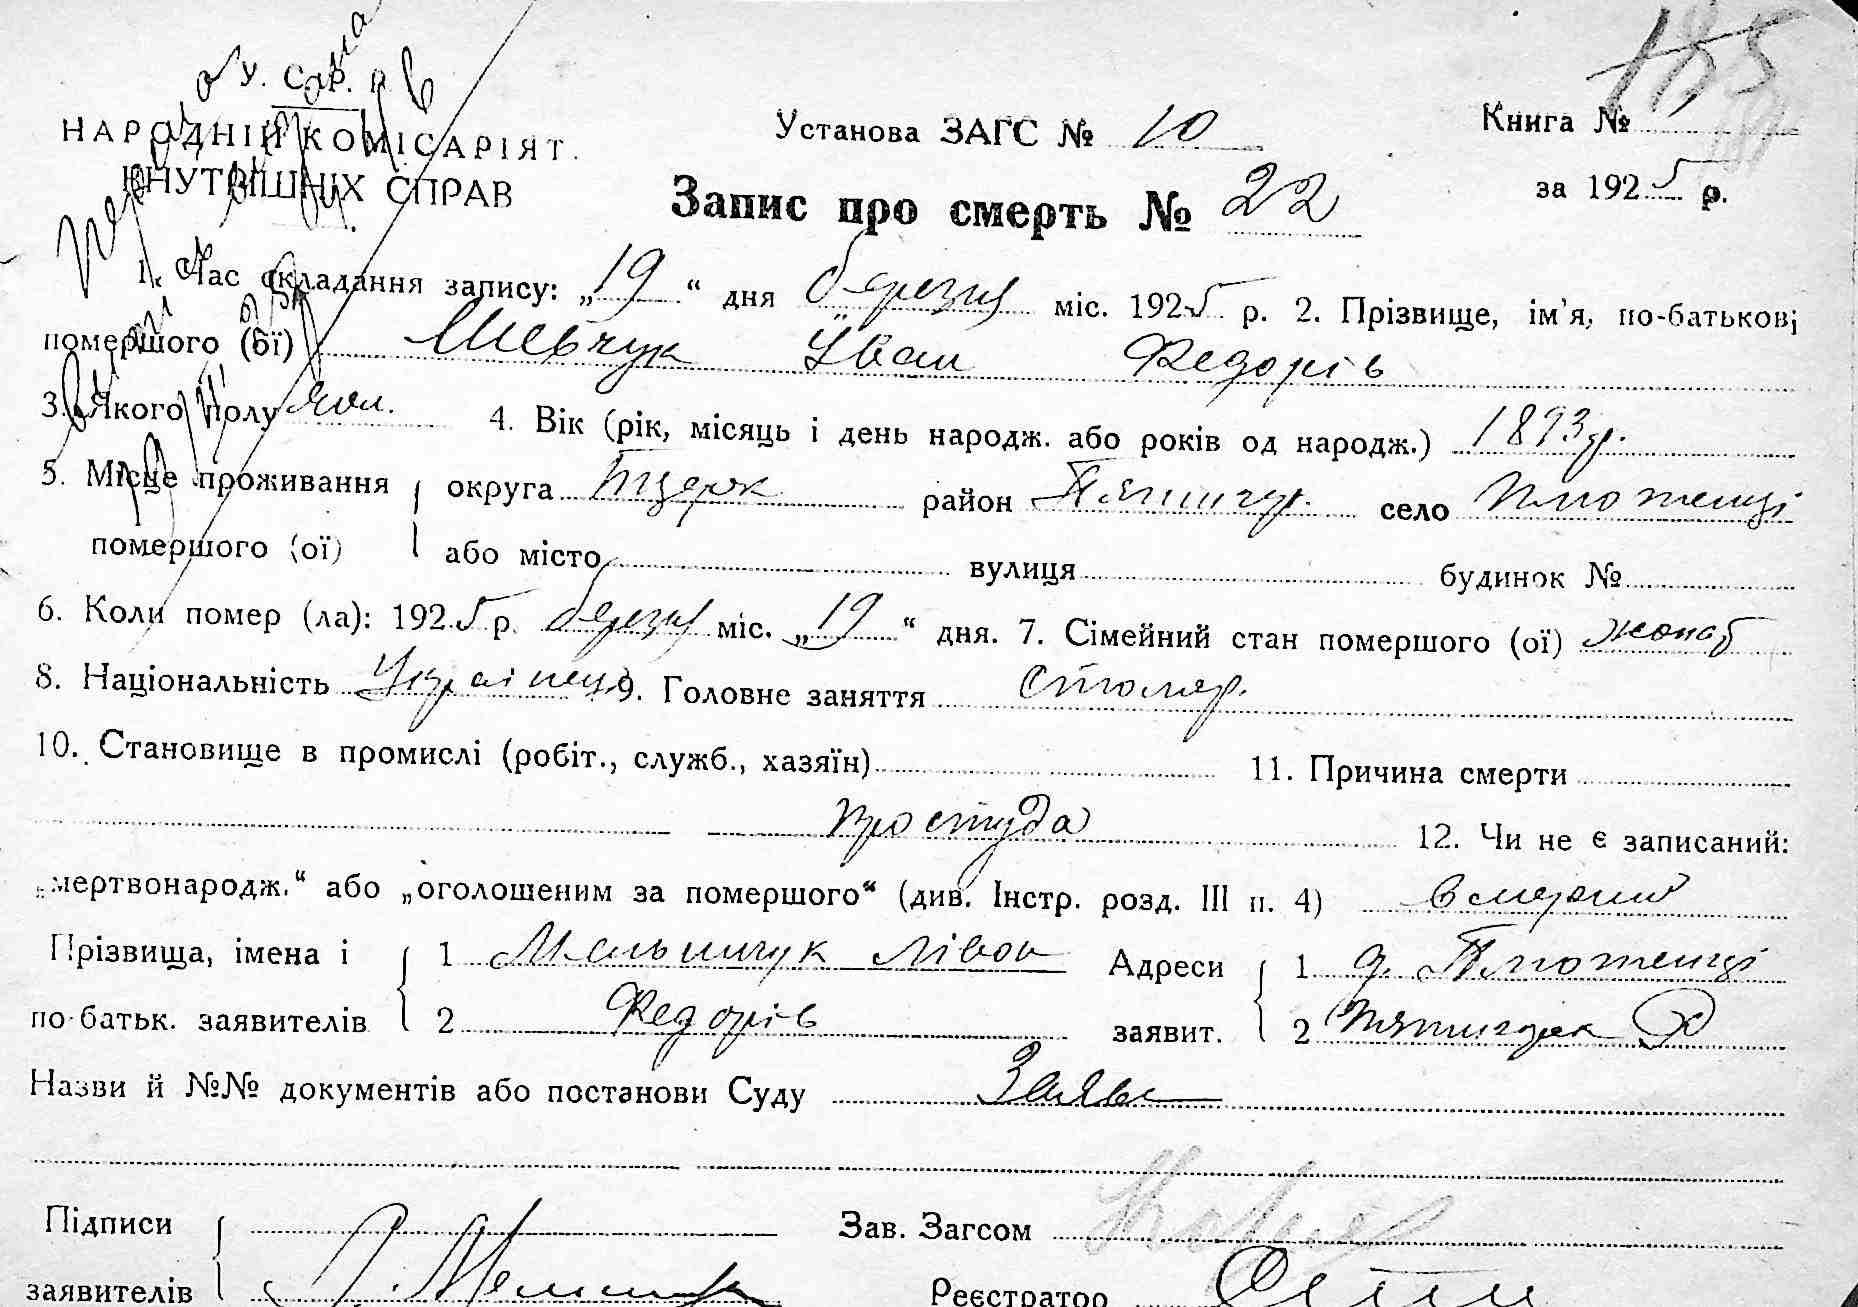 У. С. Р. Р.
НАРОДНІЙ КОМІСАРІЯТ.
ВНУТРІШНІХ СПРАВ
Установа ЗАГС № 10
Книга № 1
185
за 1925 р.
Запис про смерть № 22
1. Час складання запису: „19“ дня березня міс. 1925 р. 2. Прізвище, ім'я, по-батькові
помершого (ої) Шевчук Іван Федорів
3. Якого полу чол. 4. Вік (рік, місяць і день народж. або років од народж.) 1893 р.
5. Місце проживання округа Бцерк район Пятигор. село Плотенці
помершого (ої) або місто вулиця будинок №
6. Коли помер (ла): 1925 р. березня міс. „19“ дня. 7. Сімейний стан помершого (ої) жонат
8. Національність Українець 9. Головне заняття Столяр.
10. Становище в промислі (робіт., служб., хазяїн) 11. Причина смерти
простуда 12. Чи не є записаний:
„мертвонародж.“ або „оголошеним за помершого“ (див. Інстр. розд. III п. 4) вмерший
Прізвища, імена і 1 Мельничук Лівон Адреси 1 Плотенці
по-батьк. заявителів 2 Федорів заявит. 2 Пятигорск Р
Назви й №№ документів або постанови Суду Заява
Підписи Зав. Загсом
заявителів Реєстратор